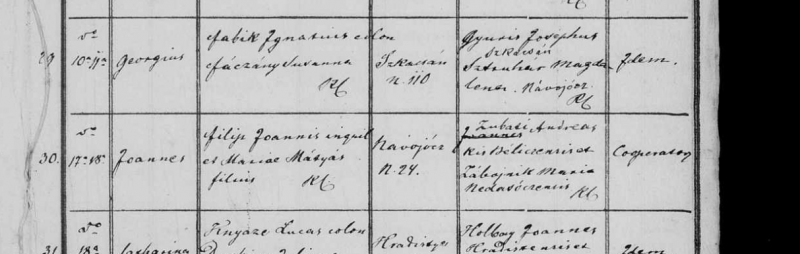 29. do 10a 11a Georgius
Fabik Ignatius colon
Fáczány Susanna
RC
Szkacsán
N. 110
Gyuris Josephus
Szkacsán
Sztruhár Magda-
lena. Návojócz.
RC
Idem.
30. do 17a 18a Joannes
Filip Joannis inquil
et Mariae Mátyás
filius RC
Navojócz
N. 24.
Zubasi Andreas
Joannes
Kis Béliczensis et
Zábojnik Maria
Nedasóczensis
RC
Cooperator
31. do 18a Catharina
Lucas colon
Hradistye
Holbay Joannes
Hradistensis et
Idem